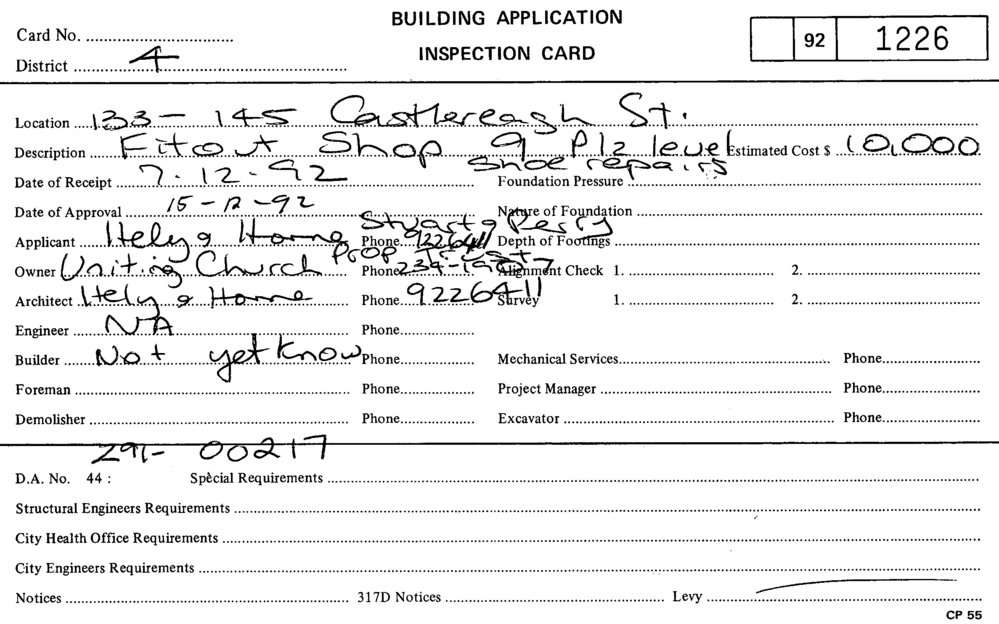 BUILDING APPLICATION
INSPECTION CARD
Card No.
District 4
92 1226
Location 133 - 145 Castlereagh St.
Description Fitout Shop 9 Plz level Estimated Cost $ 10,000
shoe repairs
Date of Receipt 7.12.92 Foundation Pressure
Date of Approval 15-12-92 Nature of Foundation
Stuart Perry
Applicant Hely & Horne Phone 9226411 Depth of Footings
Owner Uniting Church Prop Trust Phone Alignment Check 1. 2.
Architect Hely & Horne Phone 9226411 Survey 1. 2.
Engineer NA Phone
Builder Not yet know Phone Mechanical Services Phone
Foreman Phone Project Manager Phone
Demolisher Phone Excavator Phone
Z91- 00217
D.A. No. 44 : Special Requirements
Structural Engineers Requirements
City Health Office Requirements
City Engineers Requirements
Notices 317D Notices Levy
CP 55